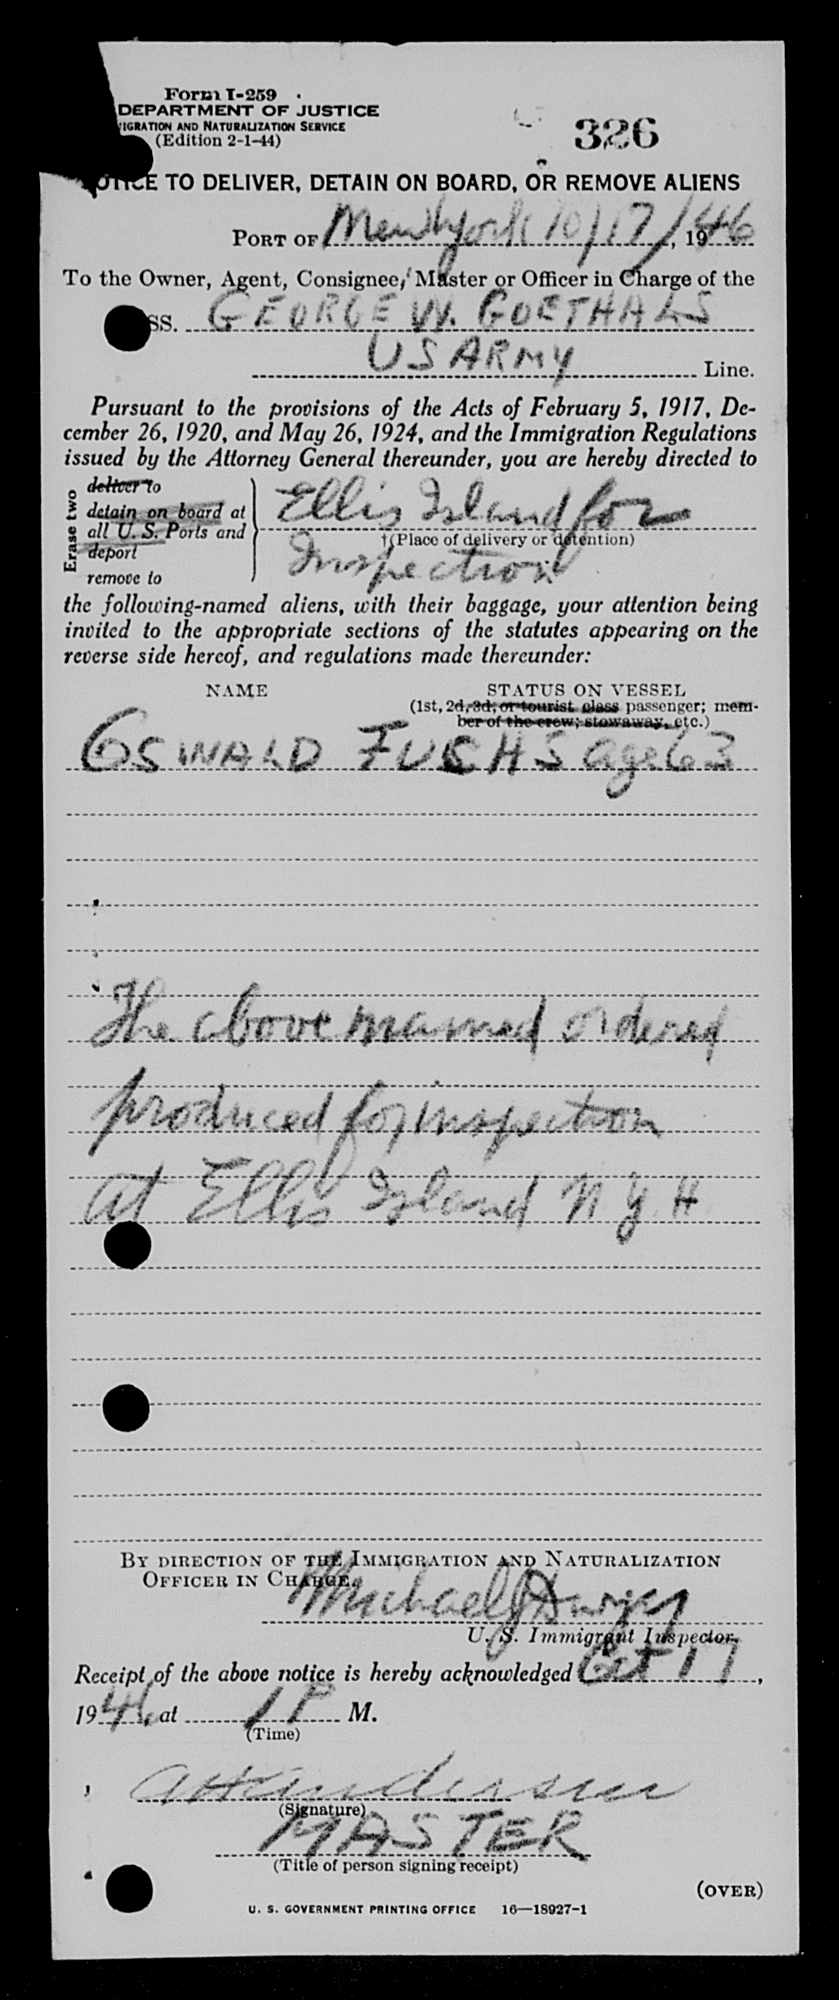 Form I-259
DEPARTMENT OF JUSTICE
IGRATION AND NATURALIZATION SERVICE
(Edition 2-1-44)
326
OTICE TO DELIVER, DETAIN ON BOARD, OR REMOVE ALIENS
PORT OF New York 10/17/, 1946
To the Owner, Agent, Consignee, Master or Officer in Charge of the
SS. GEORGE W. GOETHALS
US ARMY Line.
Pursuant to the provisions of the Acts of February 5, 1917, De-
cember 26, 1920, and May 26, 1924, and the Immigration Regulations
issued by the Attorney General thereunder, you are hereby directed to
Erase two
deliver to
detain on board at
all U. S. Ports and
deport
remove to
Ellis Island for
†(Place of delivery or detention)
Inspection
the following-named aliens, with their baggage, your attention being
invited to the appropriate sections of the statutes appearing on the
reverse side hereof, and regulations made thereunder:
NAME STATUS ON VESSEL
(1st, 2d, 3d, or tourist class passenger; mem-
ber of the crew; stowaway, etc.)
OSWALD FUCHS age 63
The above named ordered
produced for inspection
at Ellis Island N.Y.H
BY DIRECTION OF THE IMMIGRATION AND NATURALIZATION
OFFICER IN CHARGE.
Michael J
U. S. Immigrant Inspector.
Receipt of the above notice is hereby acknowledged Oct 17,
1946, at 1 P M.
(Time)
Andersen
(Signature)
MASTER
(Title of person signing receipt)
(OVER)
U. S. GOVERNMENT PRINTING OFFICE 16—18927-1